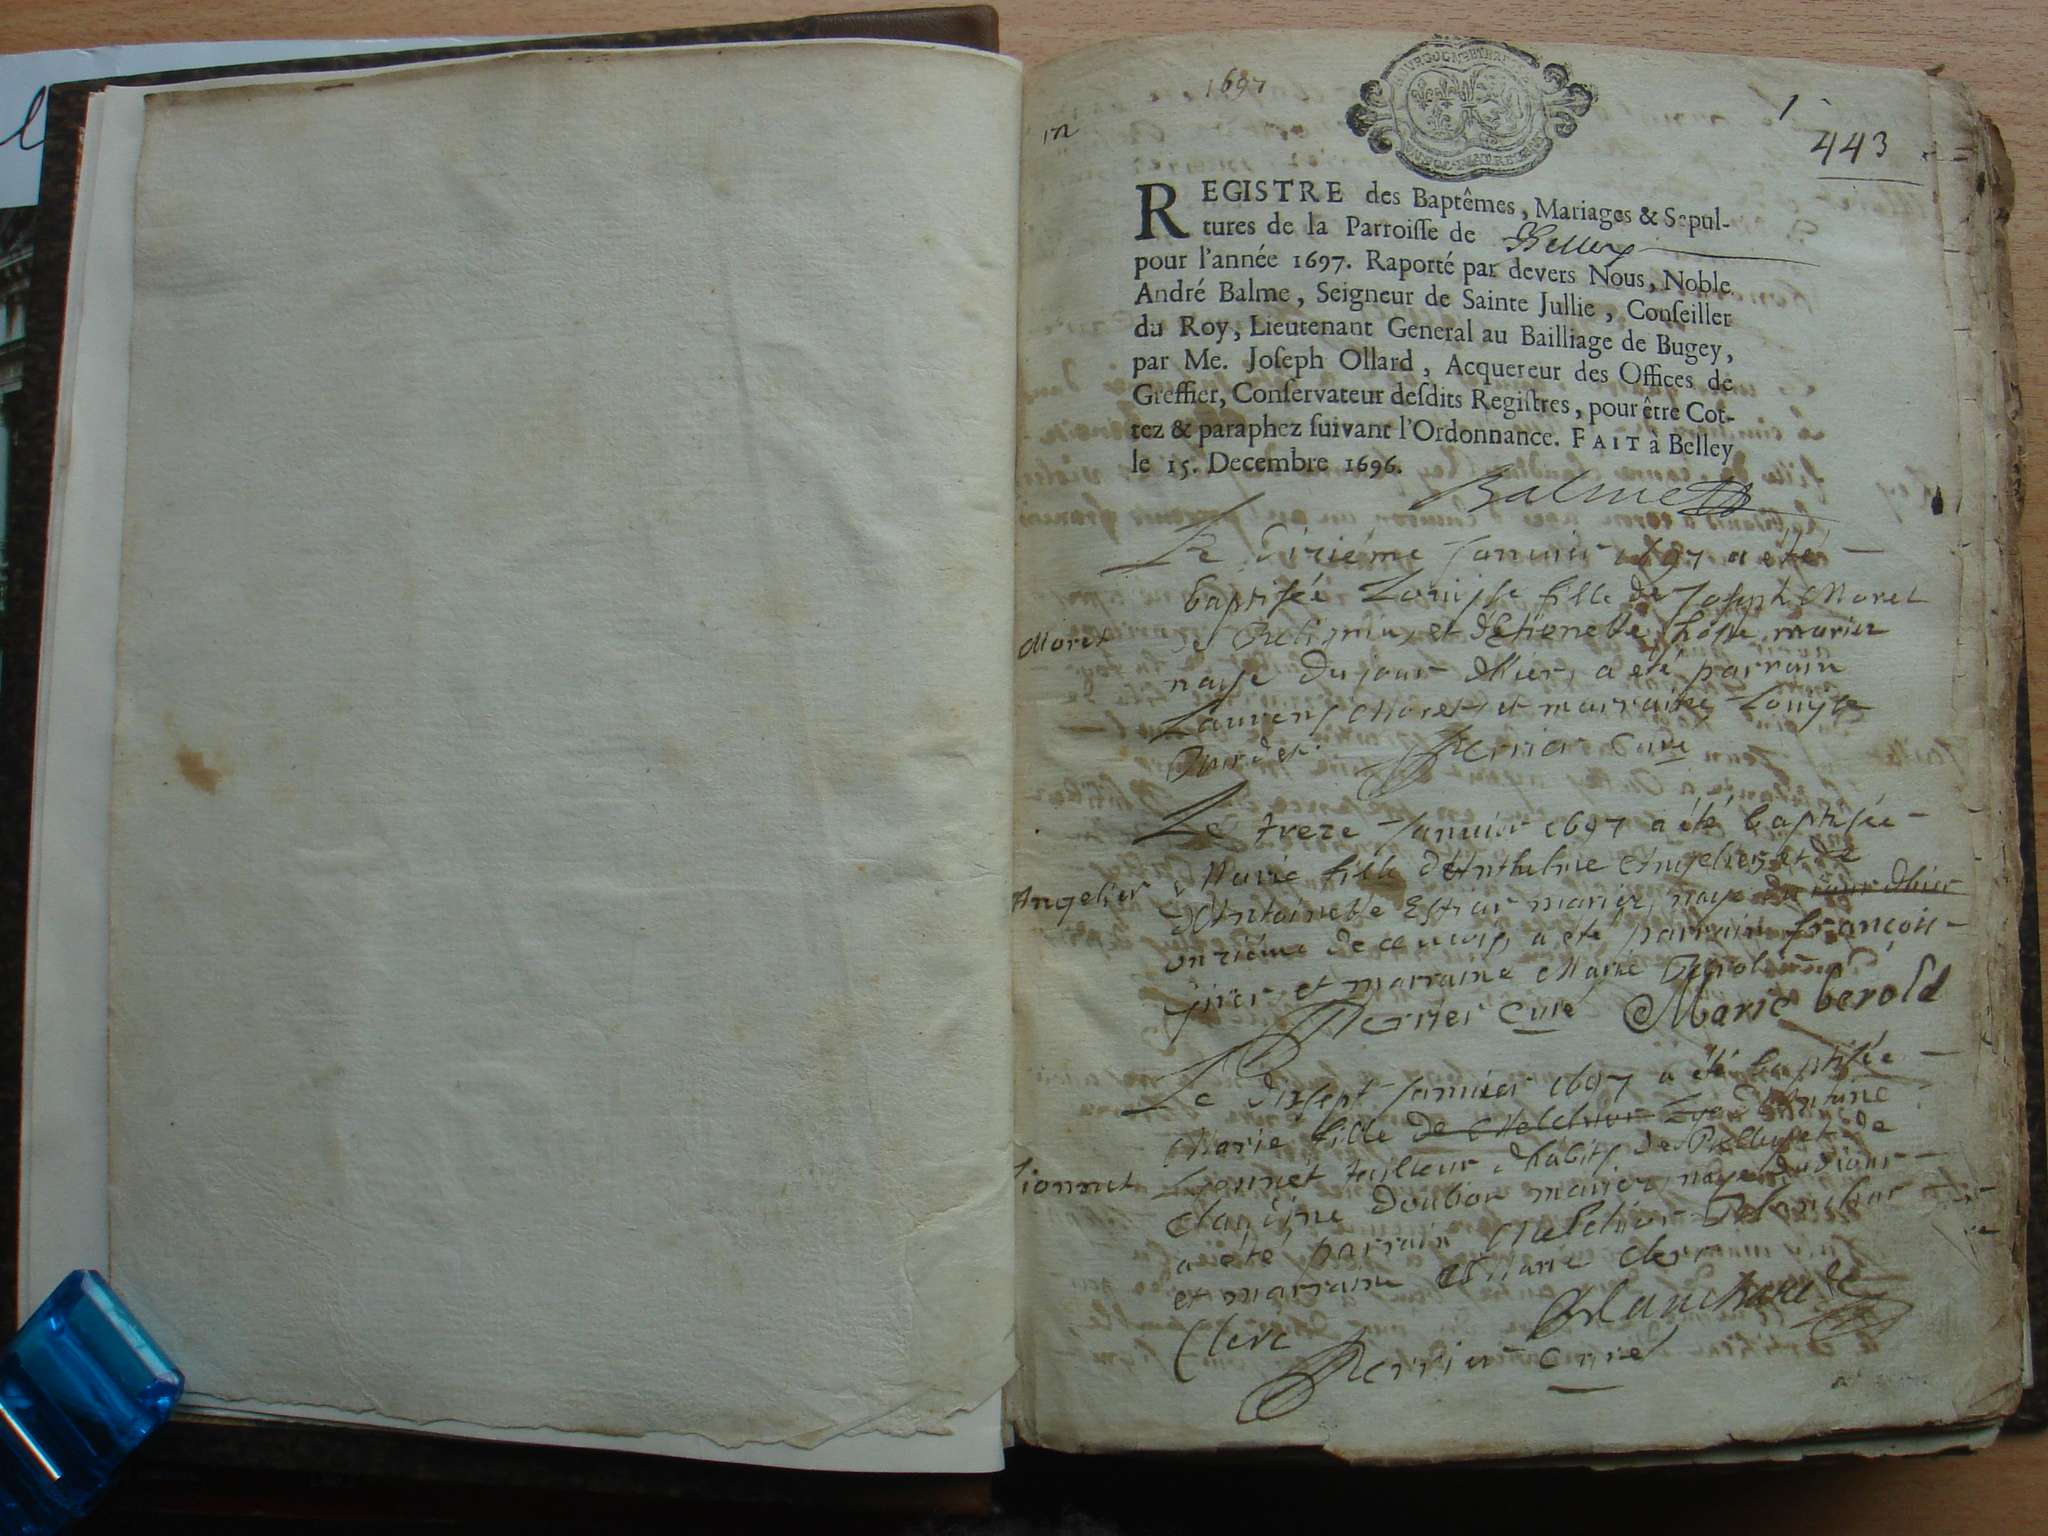 1697
1
443
REGISTRE des Baptêmes, Mariages & Sepul-
tures de la Parroisse de Belley
pour l'année 1697. Raporté par devers Nous, Noble
André Balme, Seigneur de Sainte Jullie, Conseiller
du Roy, Lieutenant General au Bailliage de Bugey,
par Me. Joseph Ollard, Acquereur des Offices de
Greffier, Conservateur desdits Registres, pour être Cot-
tez & paraphez suivant l'Ordonnance. FAIT à Belley
le 15. Decembre 1696.
Balme
Le dixiéme Janvier 1697 a été
baptisée Louyse fille de Joseph Moret
Moret
et d'Etienette hoste mariez
naye du jour d'hier, a été parrain
Laurens Moret et marraine Louyse
Perrier Curé
Le treze Janvier 1697 a été baptisée
Marie fille d'Anthelme Angelier et de
Angelier
d'Antoinette mariez, naye du jour d'hier
onziéme de ce mois, a été parrain françois
et marraine Marie
Perrier Curé Marie berold
Le dixsept Janvier 1697 a été baptisée
Marie fille de Melchior d'Antoine
Lionnet
Lyonnet tailleur d'habits de Belley et de
Claudine mariez, naye du jour
a été parrain Melchior
et marraine Marie Clerc
Clerc
Perrier Curé